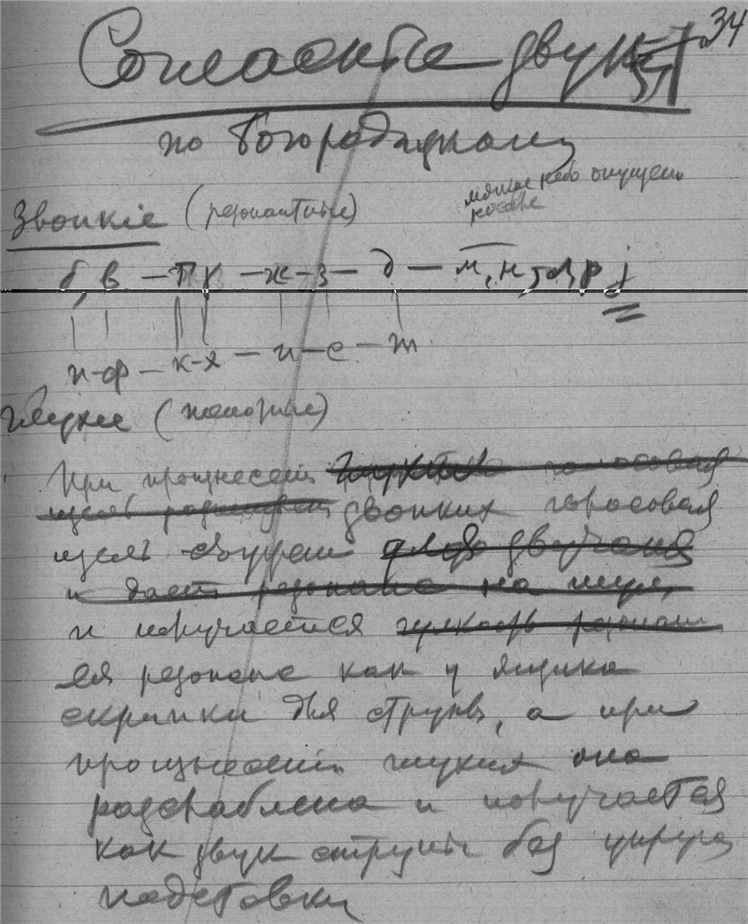 34
Согласные звуки
по Богородицкому
Звонкіе (резонантные)
мягкое небо опущено
б, в – г – ж – з – д – м, н, л, р j
п – ф – к – х – ш – с – т
Глухие (                )
При произнесении глухих голосовая
щель                звонких голосовая
щель сужена для звучания
и дает резонанс на шум,
и получается гулкость резонанс
ея резонанс как у ящика
скрипки для струны, а при
произнесении глухих она
разслаблена и получается
как звук струны без
подставки